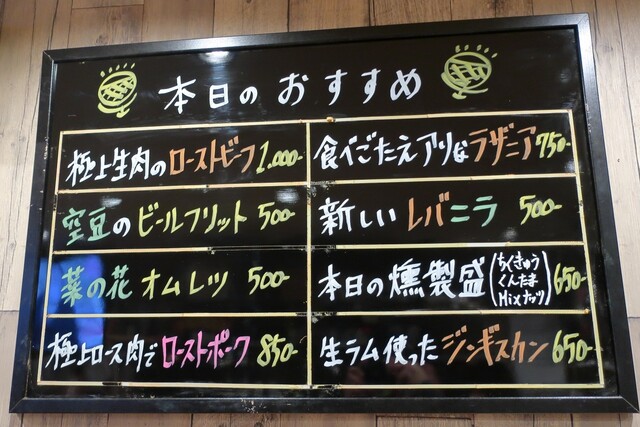 本日のおすすめ
極上生肉のローストビーフ 1.000-
空豆のビールフリット 500-
菜の花オムレツ 500-
極上ロース肉でローストポーク 850-
食べごたえアリなラザニア 750-
新しいレバニラ 500-
本日の燻製盛(ちくきゅう くんたま Mixナッツ) 650-
生ラム使ったジンギスカン 650-